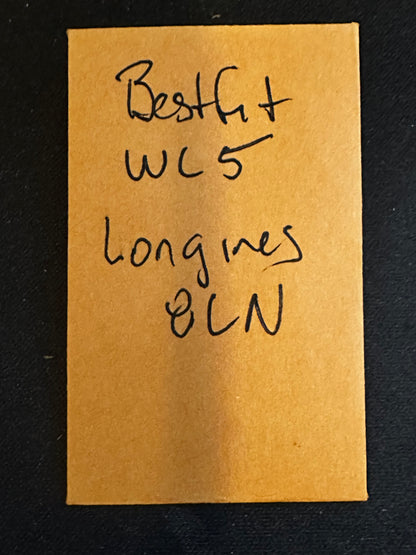 Bestfit
WL5
Longines
8LN